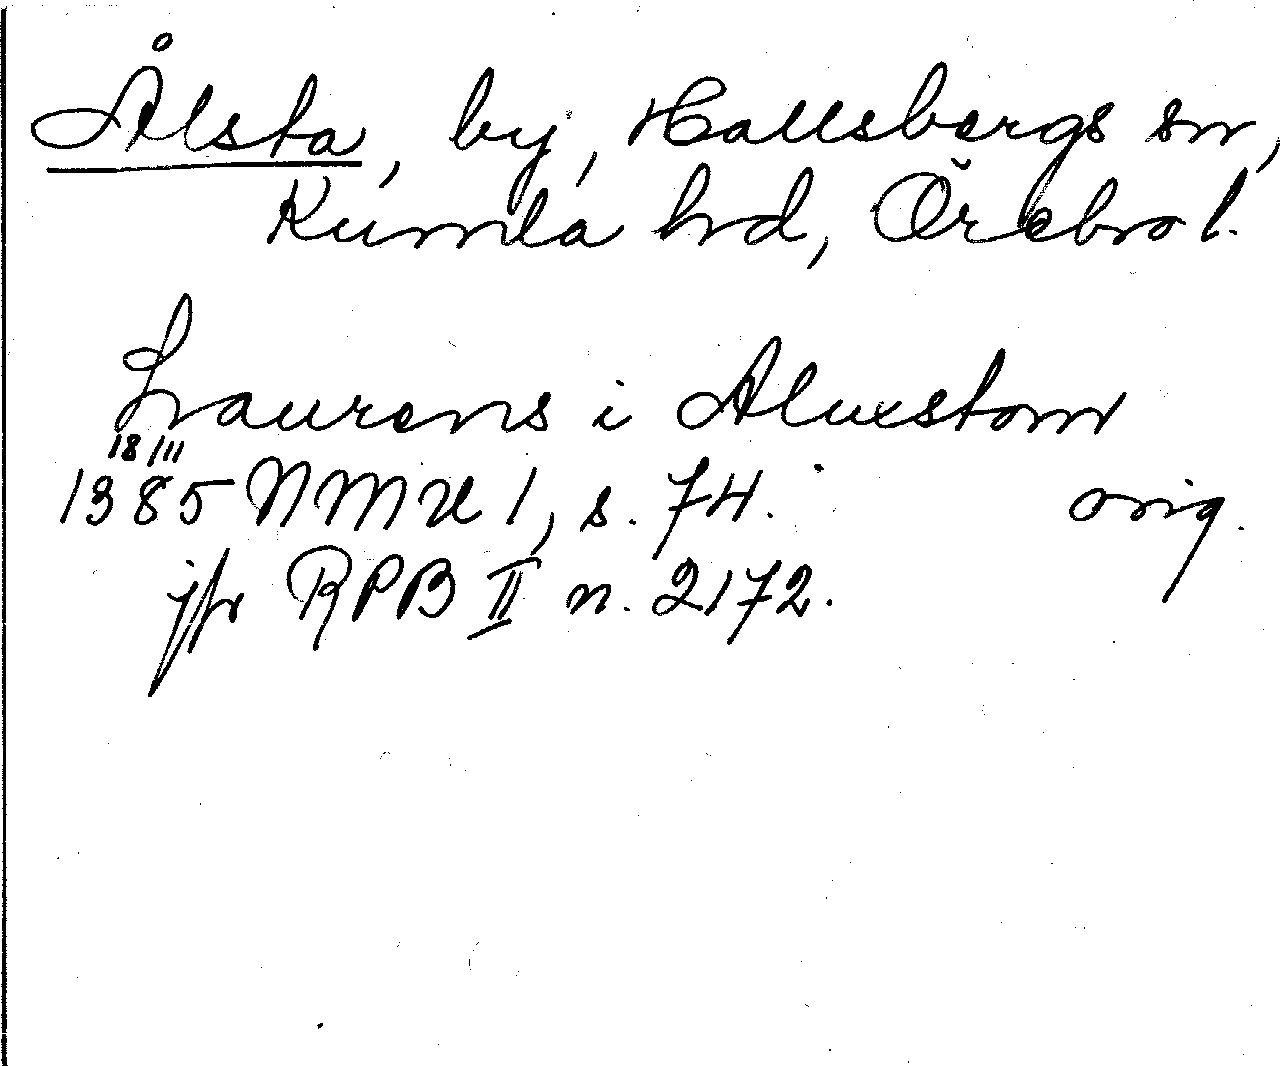 Ålsta, by, Hallsbergs sn,
Kumla hd, Örebro l.
Laurens i Aluestom
18/III
1385 NMU 1, s. 74. orig.
jfr RPB II n. 2172.